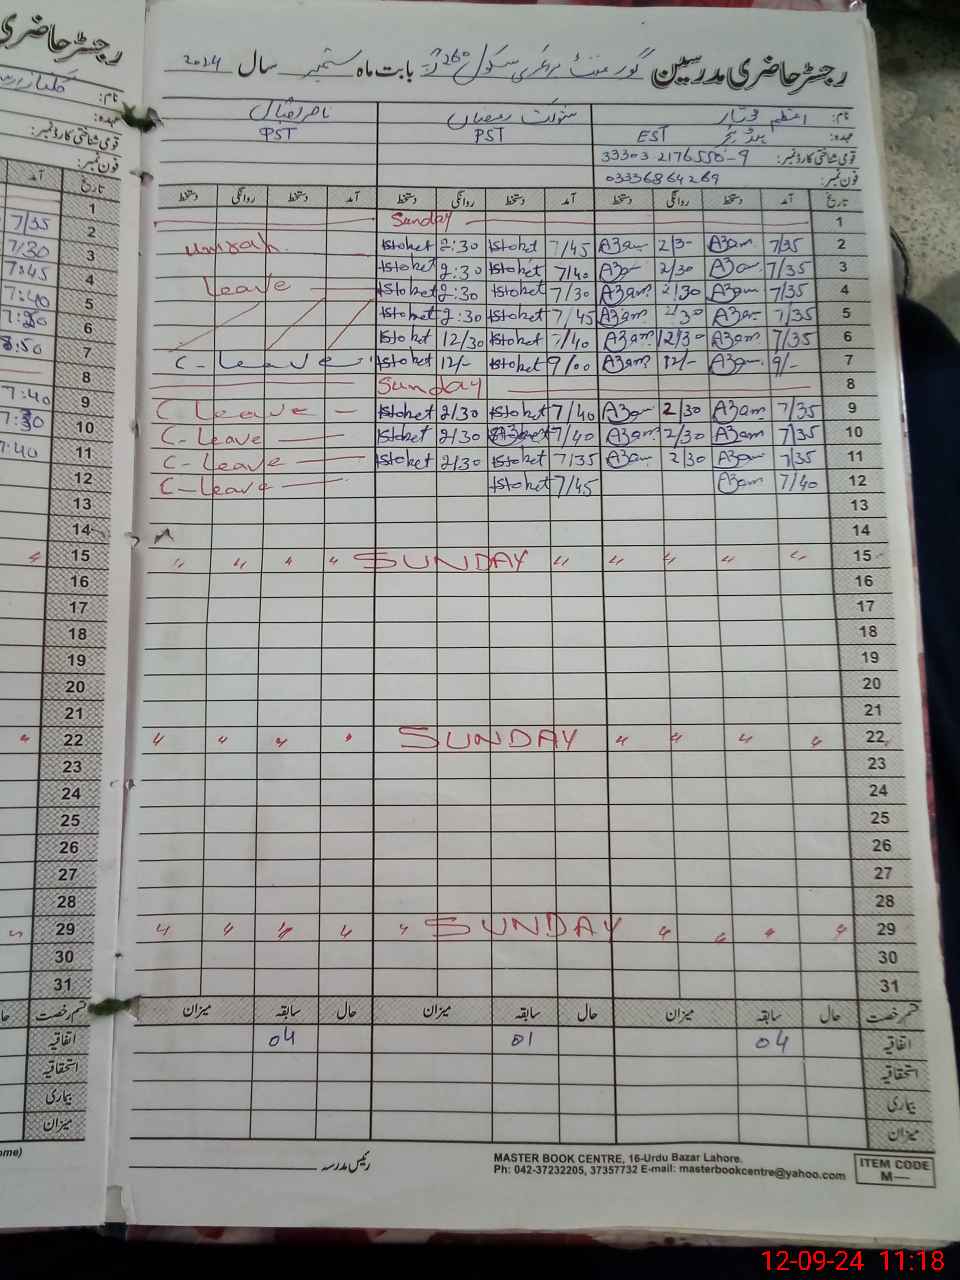 رجسٹر حاضری مدرسین گورنمنٹ پرائمری سکول بابت ماہ ستمبر سال 2024
نام: اعظم مختار شوکت رمضان ناصر اقبال
عہدہ: ہیڈ ٹیچر EST PST PST
قومی شناختی کارڈ نمبر: 33303-2176550-9
فون نمبر: 03336864269
تاریخ آمد دستخط روانگی دستخط آمد دستخط روانگی دستخط آمد دستخط روانگی دستخط
1 Sunday
2 7/35 A3am 2/3- A3am 7/45 Istoket 2:30 Istoket Umrah
3 7/35 A3am 2/30 A3am 7/40 Istoket 2:30 Istoket
4 7/35 A3am 2/30 A3am 7/30 Istoket 2:30 Istoket Leave —
5 7/35 A3am 2/30 A3am 7/45 Istoket 2:30 Istoket
6 7/35 A3am 12/30 A3am 7/40 Istoket 12/30 Istoket
7 9/- A3am 12/- A3am 9/00 Istoket 12/- Istoket C-Leave -
8 Sunday
9 7/35 A3am 2/30 A3am 7/40 Istoket 2/30 Istoket C Leave —
10 7/35 A3am 2/30 A3am 7/40 Istoket 2/30 Istoket C-Leave —
11 7/35 A3am 2/30 A3am 7/35 Istoket 2/30 Istoket C-Leave —
12 7/40 A3am 7/45 Istoket C-Leave —
13
14
15 " " " " SUNDAY " " " "
16
17
18
19
20
21
22 " " " " SUNDAY " " " "
23
24
25
26
27
28
29 " " " " SUNDAY " " " " "
30
31
قسم رخصت حال سابقہ میزان حال سابقہ میزان حال سابقہ میزان
اتفاقیہ 04 01 04
استحقاقیہ
بیماری
میزان
رئیس مدرسہ
MASTER BOOK CENTRE, 16-Urdu Bazar Lahore.
Ph: 042-37232205, 37357732 E-mail: masterbookcentre@yahoo.com
ITEM CODE
M—
رجسٹر حاضری
نام:
عہدہ:
قومی شناختی کارڈ نمبر:
فون نمبر:
تاریخ آمد
1
2 7/35
3 7/30
4 7:45
5 7:40
6
7 8:50
8
9 7:40
10 7:30
11 7:40
12
13
14
15 "
16
17
18
19
20
21
22 "
23
24
25
26
27
28
29 "
30
31
قسم رخصت
اتفاقیہ
استحقاقیہ
بیماری
میزان
ome)
12-09-24 11:18